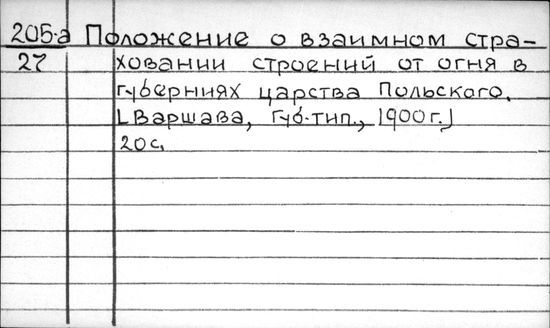 205-а Положение о взаимном стра-
27 ховании строений от огня в
губерниях царства Польского.
[Варшава, Губ. тип., 1900 г.]
20 с.